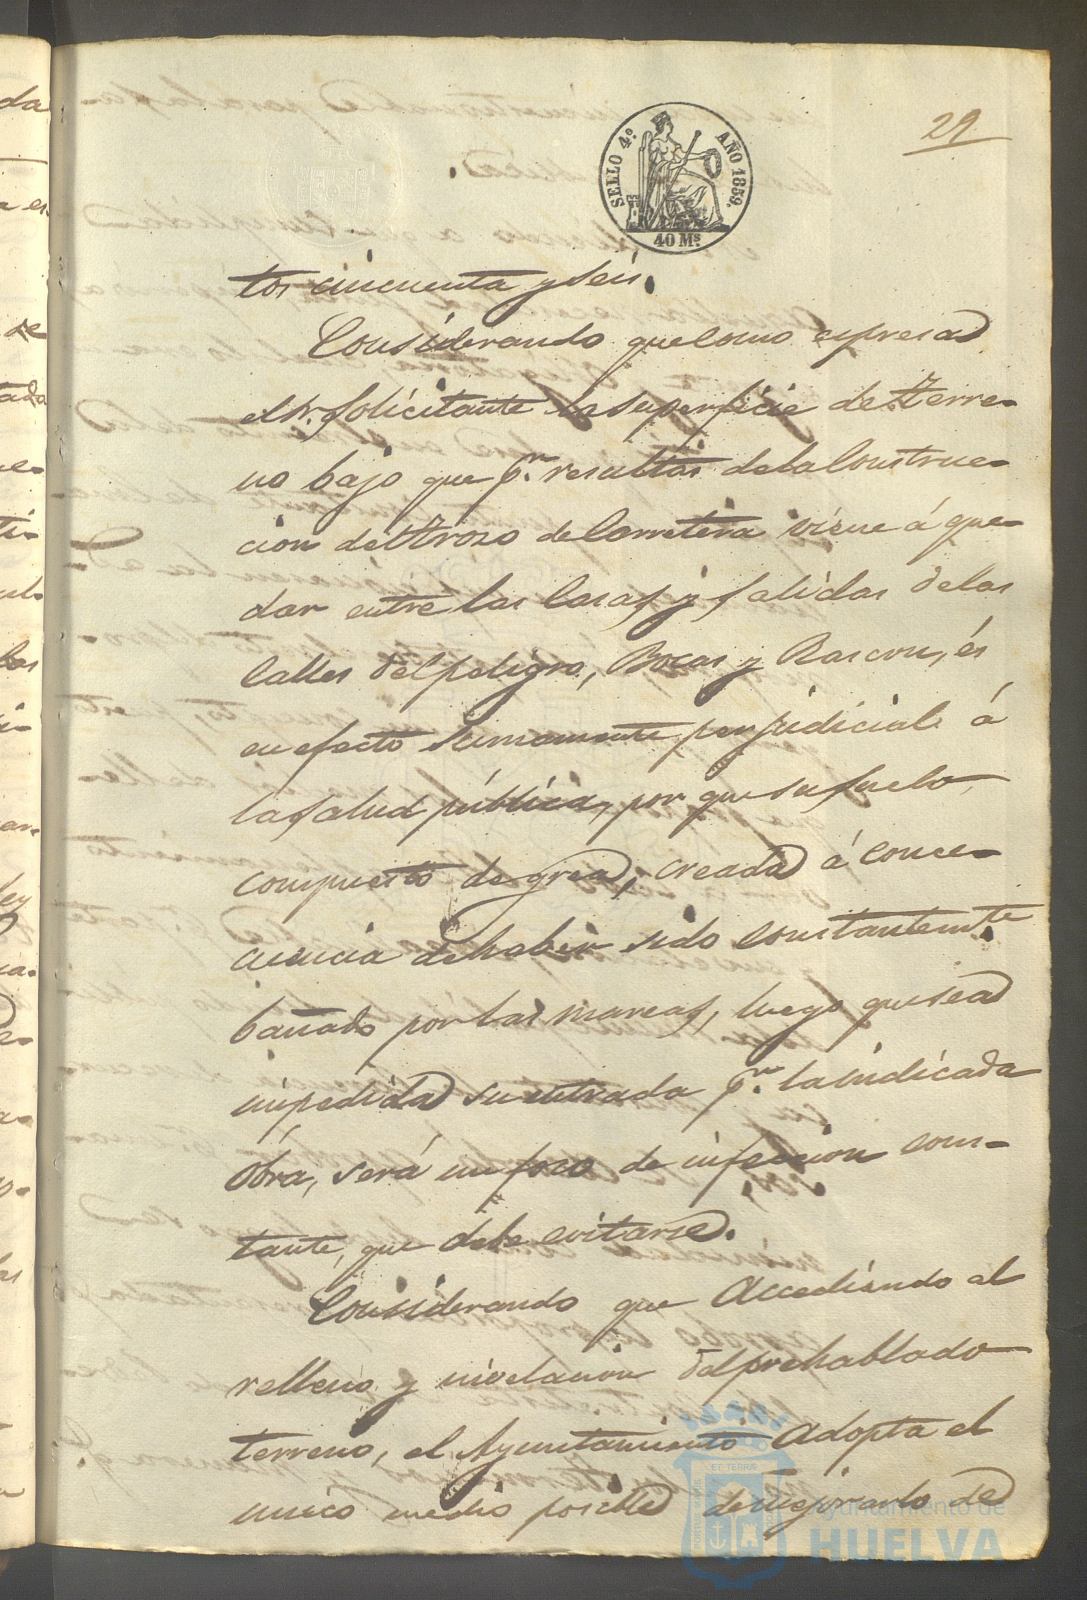 29
SELLO 4º AÑO 1859.
40 Ms.
tos cincuenta y seis.
Considerando que como espresa
el Sr. solicitante la superficie de terre-
no bajo que pr. resultas de la Construc-
cion del trozo de Carretera viene á que-
dar entre las Casas y salidas de las
Calles del peligro, Bocas y Rascon, és
en efecto sumamente perjudicial á
la salud pública, por que su suelo,
compuesto de greda, creada á conce-
cuencia de haber sido constantemte.
bañado por las mareas, luego que sea
impedida su entrada pr. la indicada
Obra, será un foco de infeccion cons-
tante, que debe evitarse.
Considerando que Accediendo al
relleno y nivelacion del prehablado
terreno, el Ayuntamiento Adopta el
unico medio posible de mejorarlo de
Ayuntamiento de
HUELVA